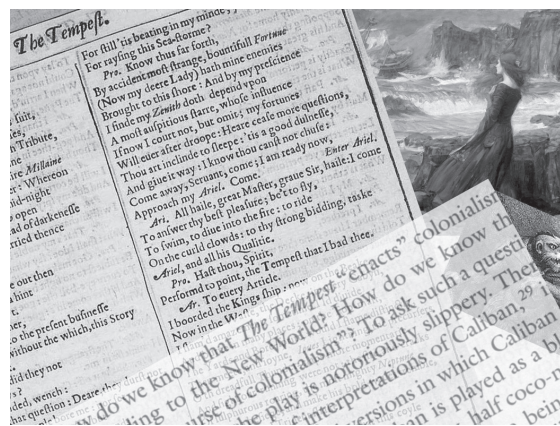 The Tempest.
suit,
Tribute,
Millaine
: Whereon
id-night
open
ad of darkenesse
rried thence
e out then
hint
o the present businesse
without the which, this Story
did they not
s?
ded, wench:
hat question: Deare, they durst not
For still 'tis beating in my minde;
For raysing this Sea-storme?
Pro. Know thus far forth,
By accident most strange, bountifull Fortune
(Now my deere Lady) hath mine enemies
Brought to this shore: And by my prescience
I finde my Zenith doth depend vpon
A most auspitious starre, whose influence
If now I court not, but omit; my fortunes
Will euer after droope: Heare cease more questions,
Thou art inclinde to sleepe: 'tis a good dulnesse,
And giue it way: I know thou canst not chuse:
Come away, Seruant, come; I am ready now,
Approach my Ariel. Come. Enter Ariel.
Ari. All haile, great Master, graue Sir, haile: I come
To answer thy best pleasure; be't to fly,
To swim, to diue into the fire: to ride
On the curld clowds: to thy strong bidding, taske
Ariel, and all his Qualitie.
Pro. Hast thou, Spirit,
Performd to point, the Tempest that I bad thee.
Ar. To euery Article.
I boorded the Kings ship: now
Now in the
do we know that The Tempest "enacts" colonialist
ding to the New World? How do we know th
urse of colonialism"? To ask such a questi
he play is notoriously slippery. Ther
interpretations of Caliban,29 i
versions in which Caliban
an is played as a bl
half coco-n
bein